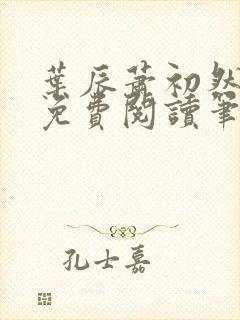 葉辰蕭初然
免費閱讀筆
孔士嘉